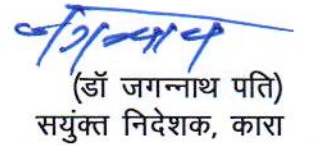 (डॉ जगन्नाथ पति)
सयुंक्त निदेशक, कारा